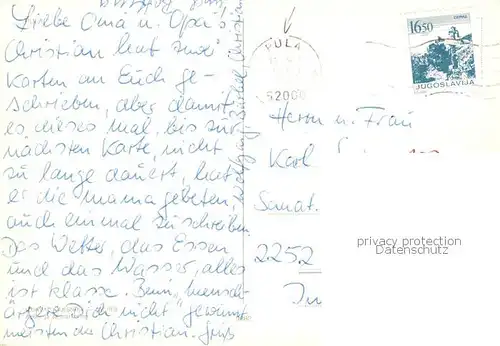 Liebe Oma u. Opa's
Christian hat zwei
Karten an Euch ge-
schrieben, aber damit
es dieses mal, bis zur
nächsten Karte, nicht
zu lange dauert, hat
er die mama gebeten,
auch einmal zu schreiben.
Das Wetter, das Essen
und das Wasser, alles
ist klasse. Beim "mensch
ärgere Dich nicht" gewinnt
meisten der Christian. Gruß
Wolfgang, Bärbel, Christian
PULA
52000
16,50
JUGOSLAVIJA
Herrn u. Frau
Karl
Sanat.
2252
privacy protection
Datenschutz